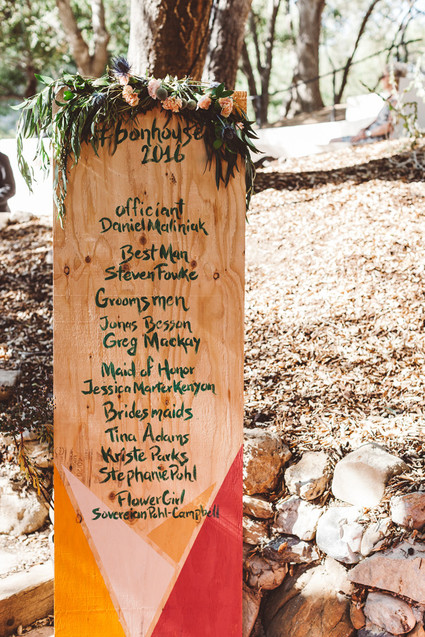 #bonhouse
2016
officiant
Daniel Maliniak
Best Man
Steven Fowke
Groomsmen
Jonas Besson
Greg Mackay
Maid of Honor
Jessica Marter Kenyon
Bridesmaids
Tina Adams
Kriste Parks
Stephanie Pohl
Flower Girl
Sovereign Pohl-Campbell